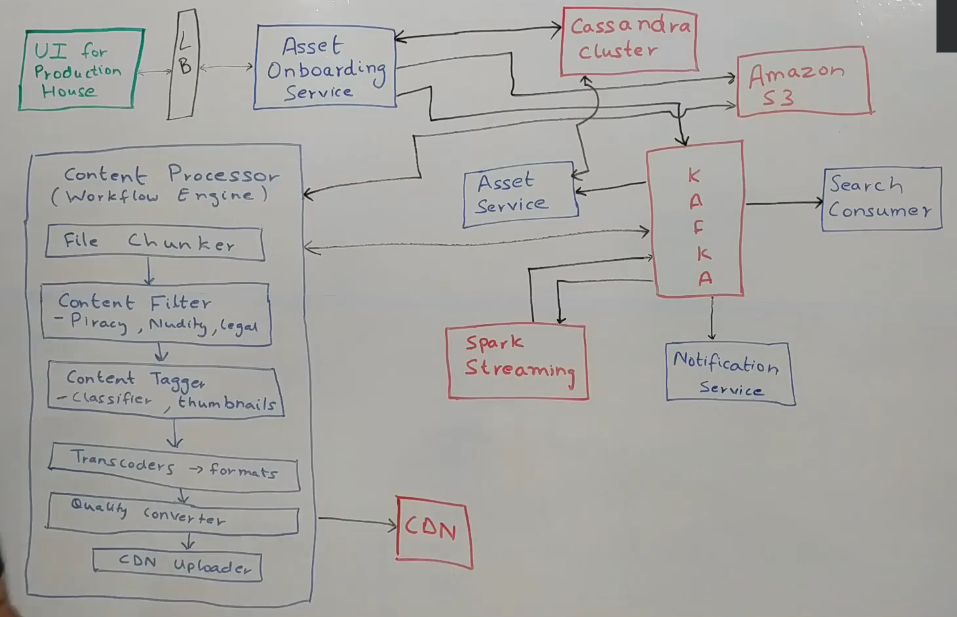 UI for
Production
House
L
B
Asset
Onboarding
Service
Cassandra
Cluster
Amazon
S3
Content Processor
(Workflow Engine)
File Chunker
Content Filter
- Piracy, Nudity, Legal
Content Tagger
- Classifier, thumbnails
Transcoders → formats
Quality Converter
CDN Uploader
Asset
Service
K
A
F
K
A
Search
Consumer
Spark
Streaming
Notification
Service
CDN